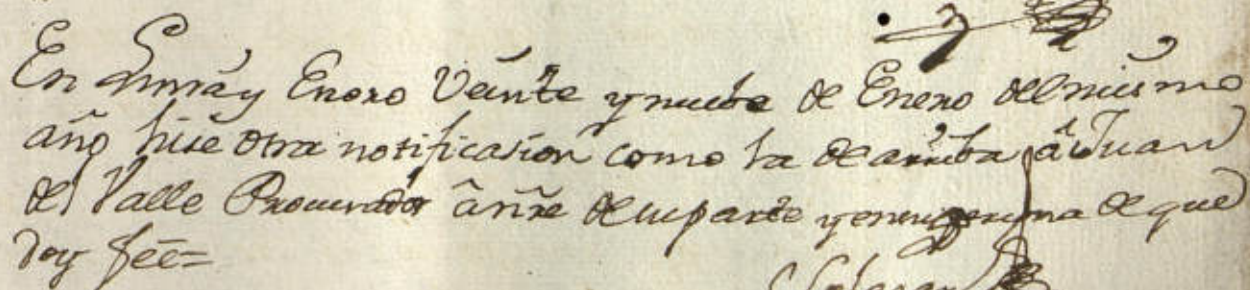 En Lima y Enero Veinte y nuebe de Enero del mismo
año hise otra notificasion como la de arriba á Juan
del Valle Procurador ân̂re de su parte y en su persona de que
doy feê=